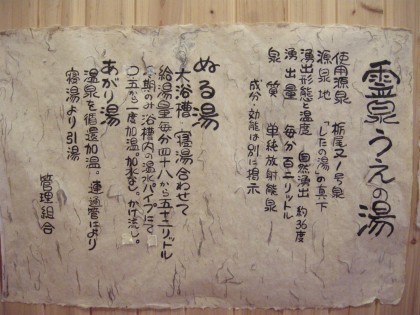 霊泉うえの湯
使用源泉 栃尾又1号泉
源泉地 「したの湯」の真下
湧出形態と温度 自然湧出 約36度
湧出量 毎分百二リットル
泉質 単純放射能泉
成分・効能は別に掲示
ぬる湯
大浴槽 寝湯合わせて
給湯量毎分四十八から五十二リットル
冬期のみ浴槽内の温水パイプにて
〇・五から一度加温。加水せず、かけ流し。
あがり湯
温泉を循環加温。連通管により
寝湯より引湯
管理組合